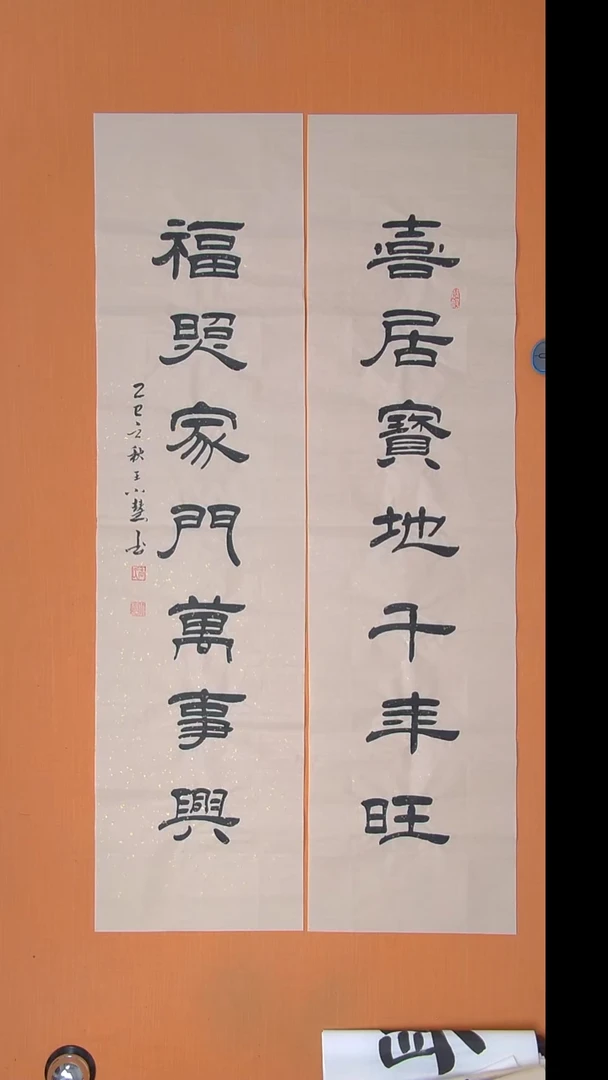 喜居寶地千年旺
福照家門萬事興
乙巳立秋王小慧書